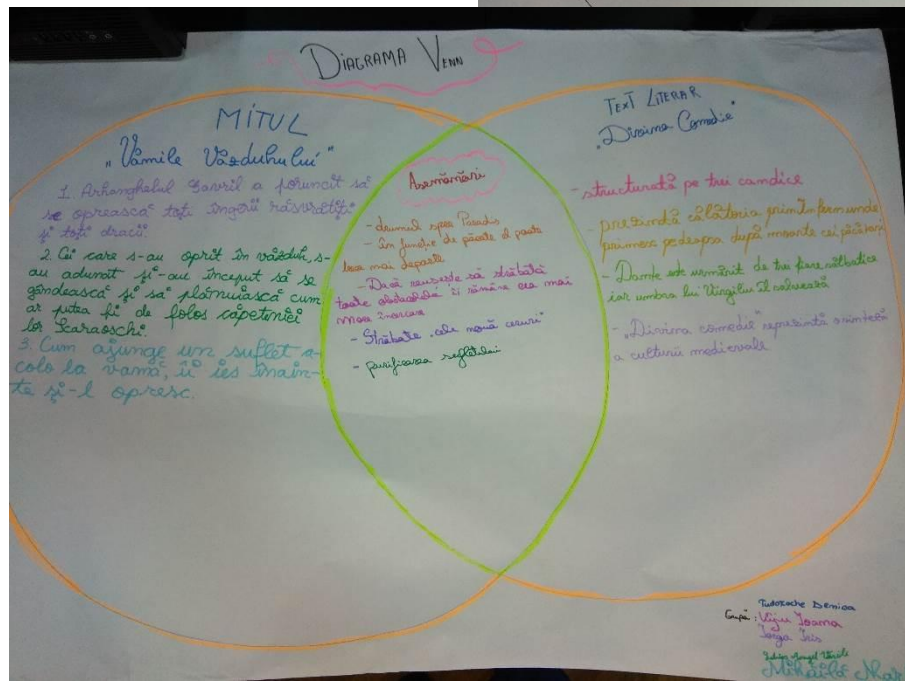 DIAGRAMA VENN
MITUL
„Vămile Văzduhului”
1. Arhanghelul Gavril a poruncit să
se oprească toți îngerii răsvrătiți
și toți dracii.
2. Cei care s-au oprit în văzduh, s-
au adunat și-au început să se
gândească și să plănuiască cum
ar putea fi de folos căpeteniei
lor Scaraoschi
3. Cum ajunge un suflet a-
colo la vamă, îi ies înain-
te și-l opresc.
Asemănări
- drumul spre Paradis
- În funcție de păcate el poate
mai departe
- Dacă reușește să străbată
toate obstacolele îi rămâne cea mai
mare încercare
- Străbate „cele nouă ceruri”
- purificarea sufletului
TEXT LITERAR
„Divina Comedie”
- structurată pe trei candice
- prezindă călătoria prin Infern unde
primesc pedeapsa după moarte cei păcătoși
- Dante este urmărit de trei fiare sălbatice
iar umbra lui Virgiliu îl salvează
- „Divina comedie” reprezintă o sinteză
a culturii medievale.
Grupa: Tudorache Denisa
Vijiu Ioana
Iorga Iris
Mihăilă